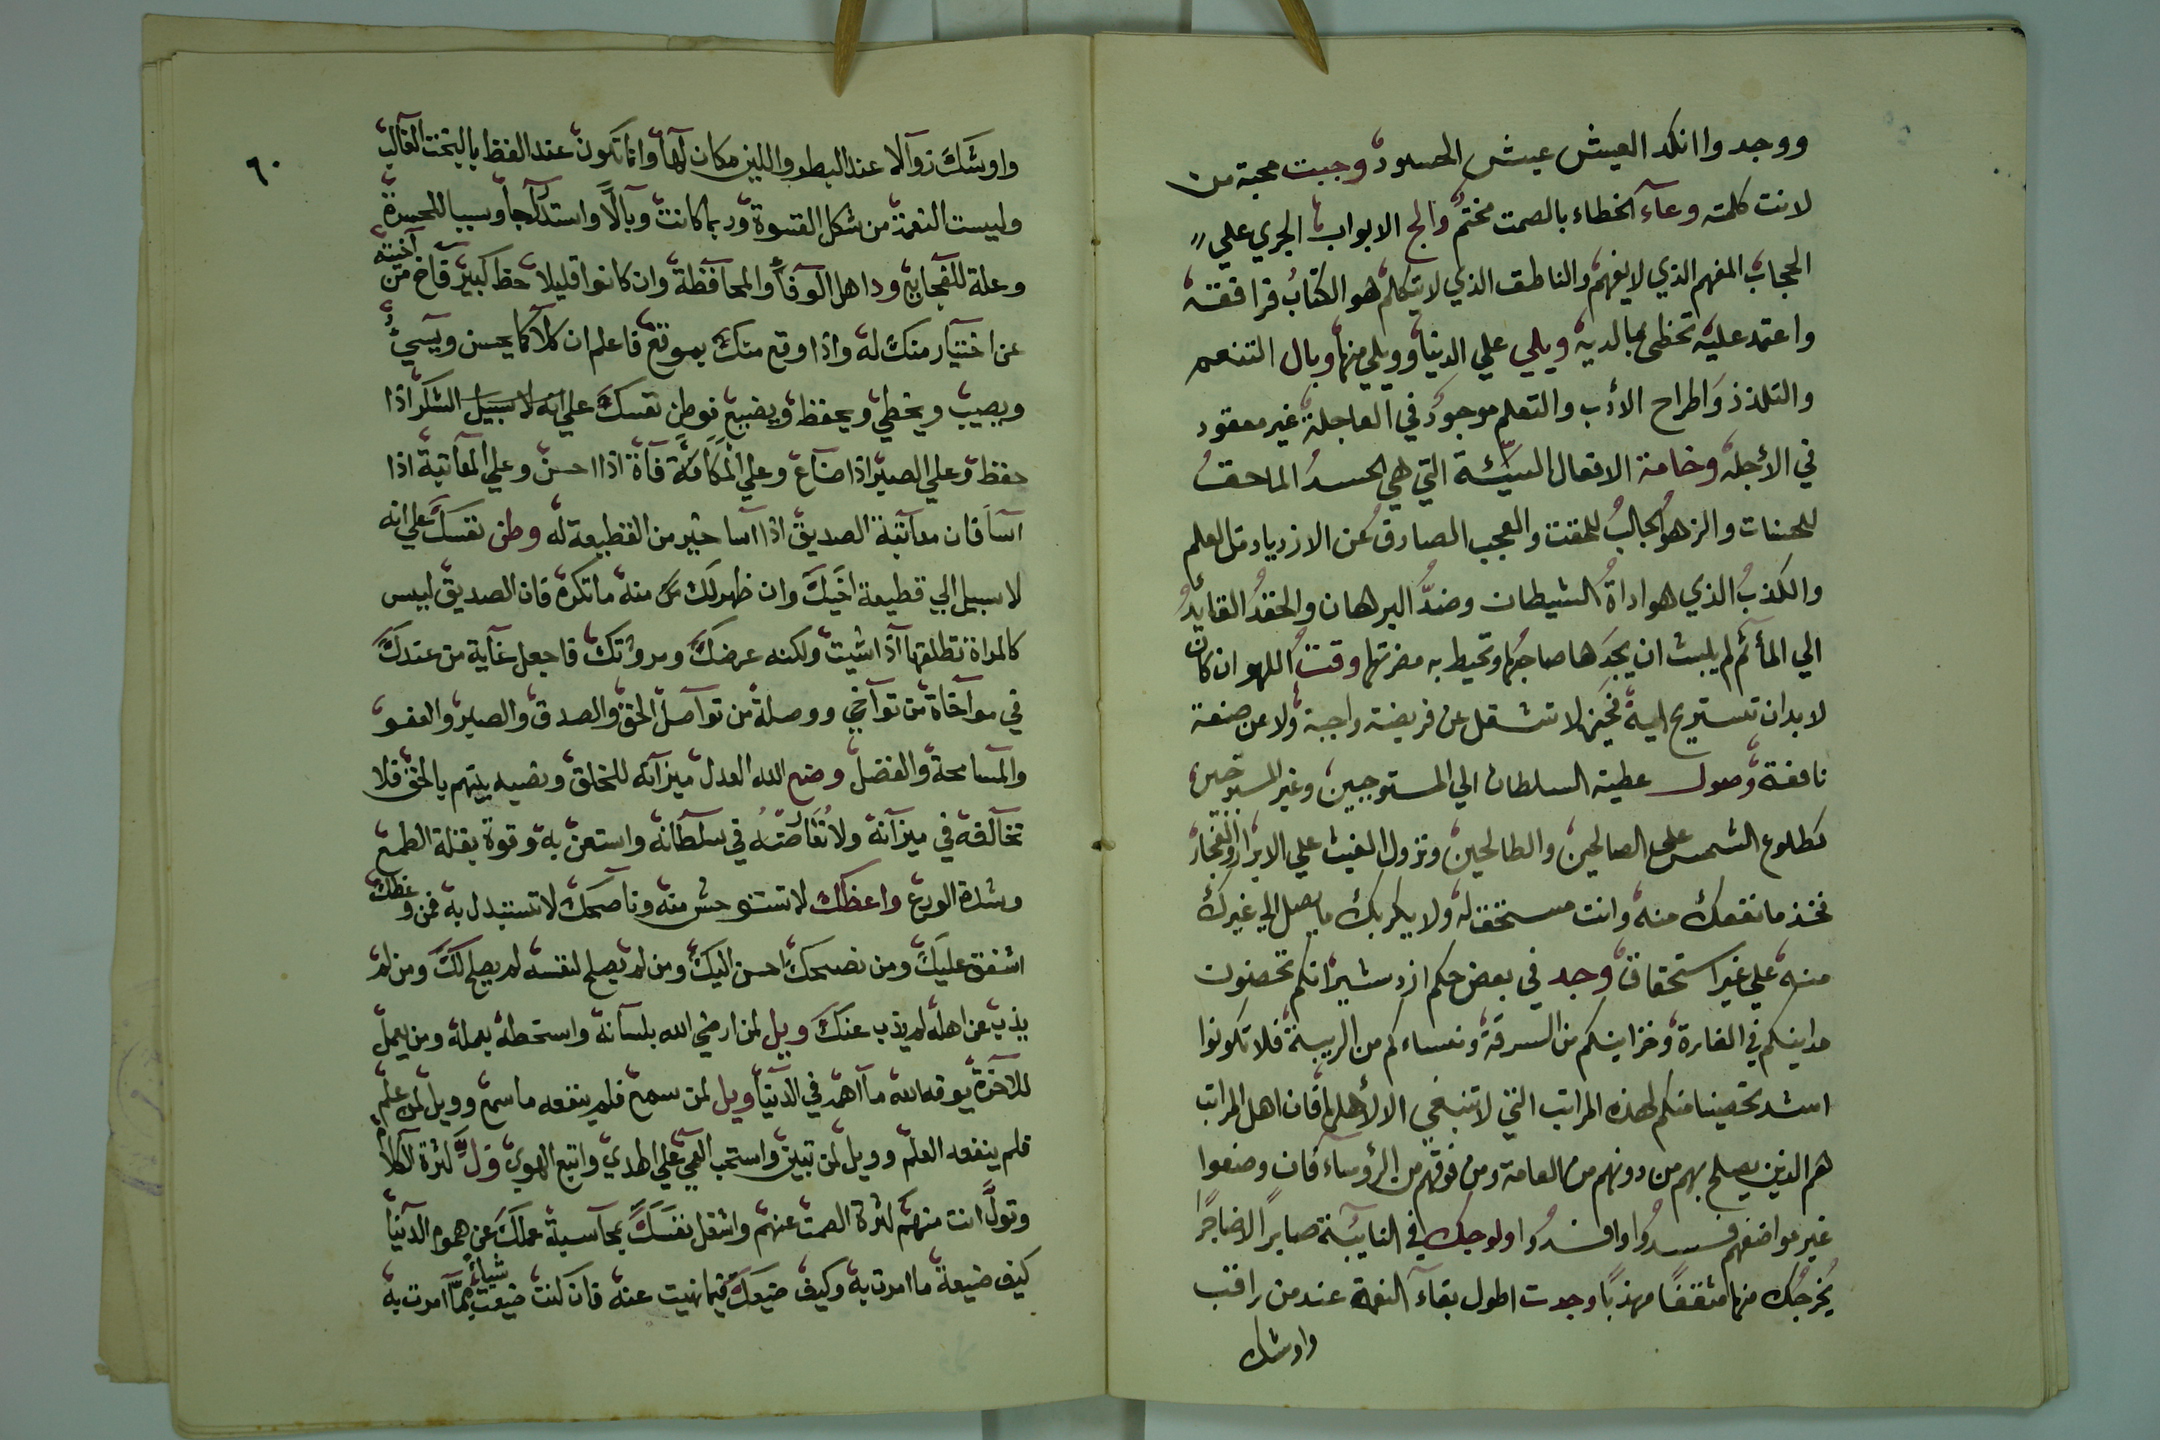 ووجدوا انكد العيش عيش الحسود وجبت محبة من
لانت كلمته وعآء الخطاء بالصمت مختم والج الابواب الجري علي
الحجاب المفهم الذي لا يفهم والناطق الذي لا يتكلم هو الكتاب فرافقته
واعتمد عليه تحظى بمالديه ويلي علي الدنيا وويلي منها وبال التنعم
والتلذذ واطراح الأدب والتعلم موجود في العاجلة غير معقود
في الأجلة وخامة الافعال السيّئة التي هي الحسد الماحق
للحسنات والزهو الجالب للمقت والعجب الصادف عن الازدياد من العلم
والكذب الذي هو اداة الشيطان وضدّ البرهان والحقد القايد
الي المأثم لم يلبث ان يجدها صاحبها وتحيط به مضرتها وقت اللهو ان كان
لا بد ان تستريح اليه فحين لا تشغل عن فريضة واجبة ولا عن صنعة
نافعة وصول عطية السلطان الي المستوجبين وغير المستوجبين
كطلوع الشمس علي الصالحين والطالحين ونزول الغيث علي الابرار والفجار
فخذ ما نفعك منه وانت مستحق له ولا يكربك ما يصل الي غيرك
منه علي غير استحقاق وجد في بعض حكم ازدشير انكم تحصنون
مداينكم في الغارة وخزاينكم من السرقة ونساءكم من الريبة فلا تكونوا
اشد تحصينا منكم لهذه المراتب التي لا تنبغي الا لأهلها فان اهل المراتب
هم الذين يصلح بهم من دونهم من العامة ومن فوقهم من الرؤساء فان وضعوا
غير مواضعهم فسدوا وافسدوا ولوجك في النايبة صابرًا لا ضاجرًا
يُخرجك منها مثقفًا مهذبًا وجدت اطول بقآء النعمة عند من راقب
واوشك
٦٠
واوشك زوآلا عند البطر واللين مكان لها وانما تكون عند الفظ بالبخت الغالب
وليست النعمة من شكل القسوة وربما كانت وبالًا واستدراجا وسببا للحسرة
وعلة للفجايع ود اهل الوفآء والمحافظة وان كانوا قليلا حظ كبير فاخ من آخيته
عن اختيار منك له واذا وقع منك بموقع فاعلم ان كلا كما يحسن ويسيء
ويصيب ويخطي ويحفظ ويضيع فوطن نفسك علي انه لا سبيل الشكر اذا
حفظ وعلي الصبر اذا ضاع وعلي المكافئة فاة اذا احسن وعلي المعاتبة اذا
اسآ فان معاتبة الصديق اذا اسا خير من القطيعة له وطن نفسك علي انه
لا سبيل الي قطيعة اخيك وان ظهر لك منه ما تكره فان الصديق ليس
كالمراة تطلقها اذا شيت ولكنه عرضك ومروتك فاجعل غاية من عندك
في مواخاة من تواخي ووصلة من تواصل الحق والصدق والصبر والعفو
والمسامحة والفضل وضع الله العدل ميزانه للخلق ونصبه بينهم بالحق فلا
تخالفه في ميزانه ولا تعارضه في سلطانه واستعن به وقوة بقلة الطمع
وشدة الورع واعظك لا تستوحش منه وناصحك لا تستبدل به فمن وعظك
اشفق عليك ومن نصحك احسن اليك ومن لم يصلح لنفسه لم يصلح لك ومن لم
يذب عن اهله لم يذب عنك ويل لمن ارضي الله بلسانه واسخطه بعمله ومن يعمل
للاخرة يوقه الله ما اهمه في الدنيا ويل لمن سمع فلم ينفعه ما سمع وويل لمن علم
فلم ينفعه العلم وويل لمن تبين واستحب العمي علي الهدي واتبع الهوي قول كثرة الكلام
وتولّ انت منهم كثرة الصمت عنهم واشغل نفسك بمحاسبة عملك عن هموم الدنيا
كيف ضيعة ما امرت به وكيف ضيعك فيما نهيت عنه فان كنت ضيعت شيئا مما امرت به